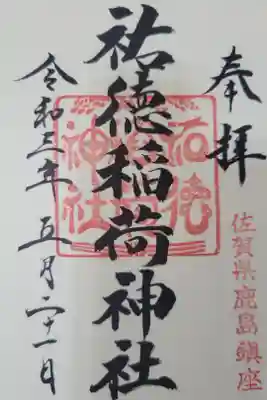 奉拝
佐賀県鹿島鎮座
祐徳稲荷神社
令和三年 五月二十一日